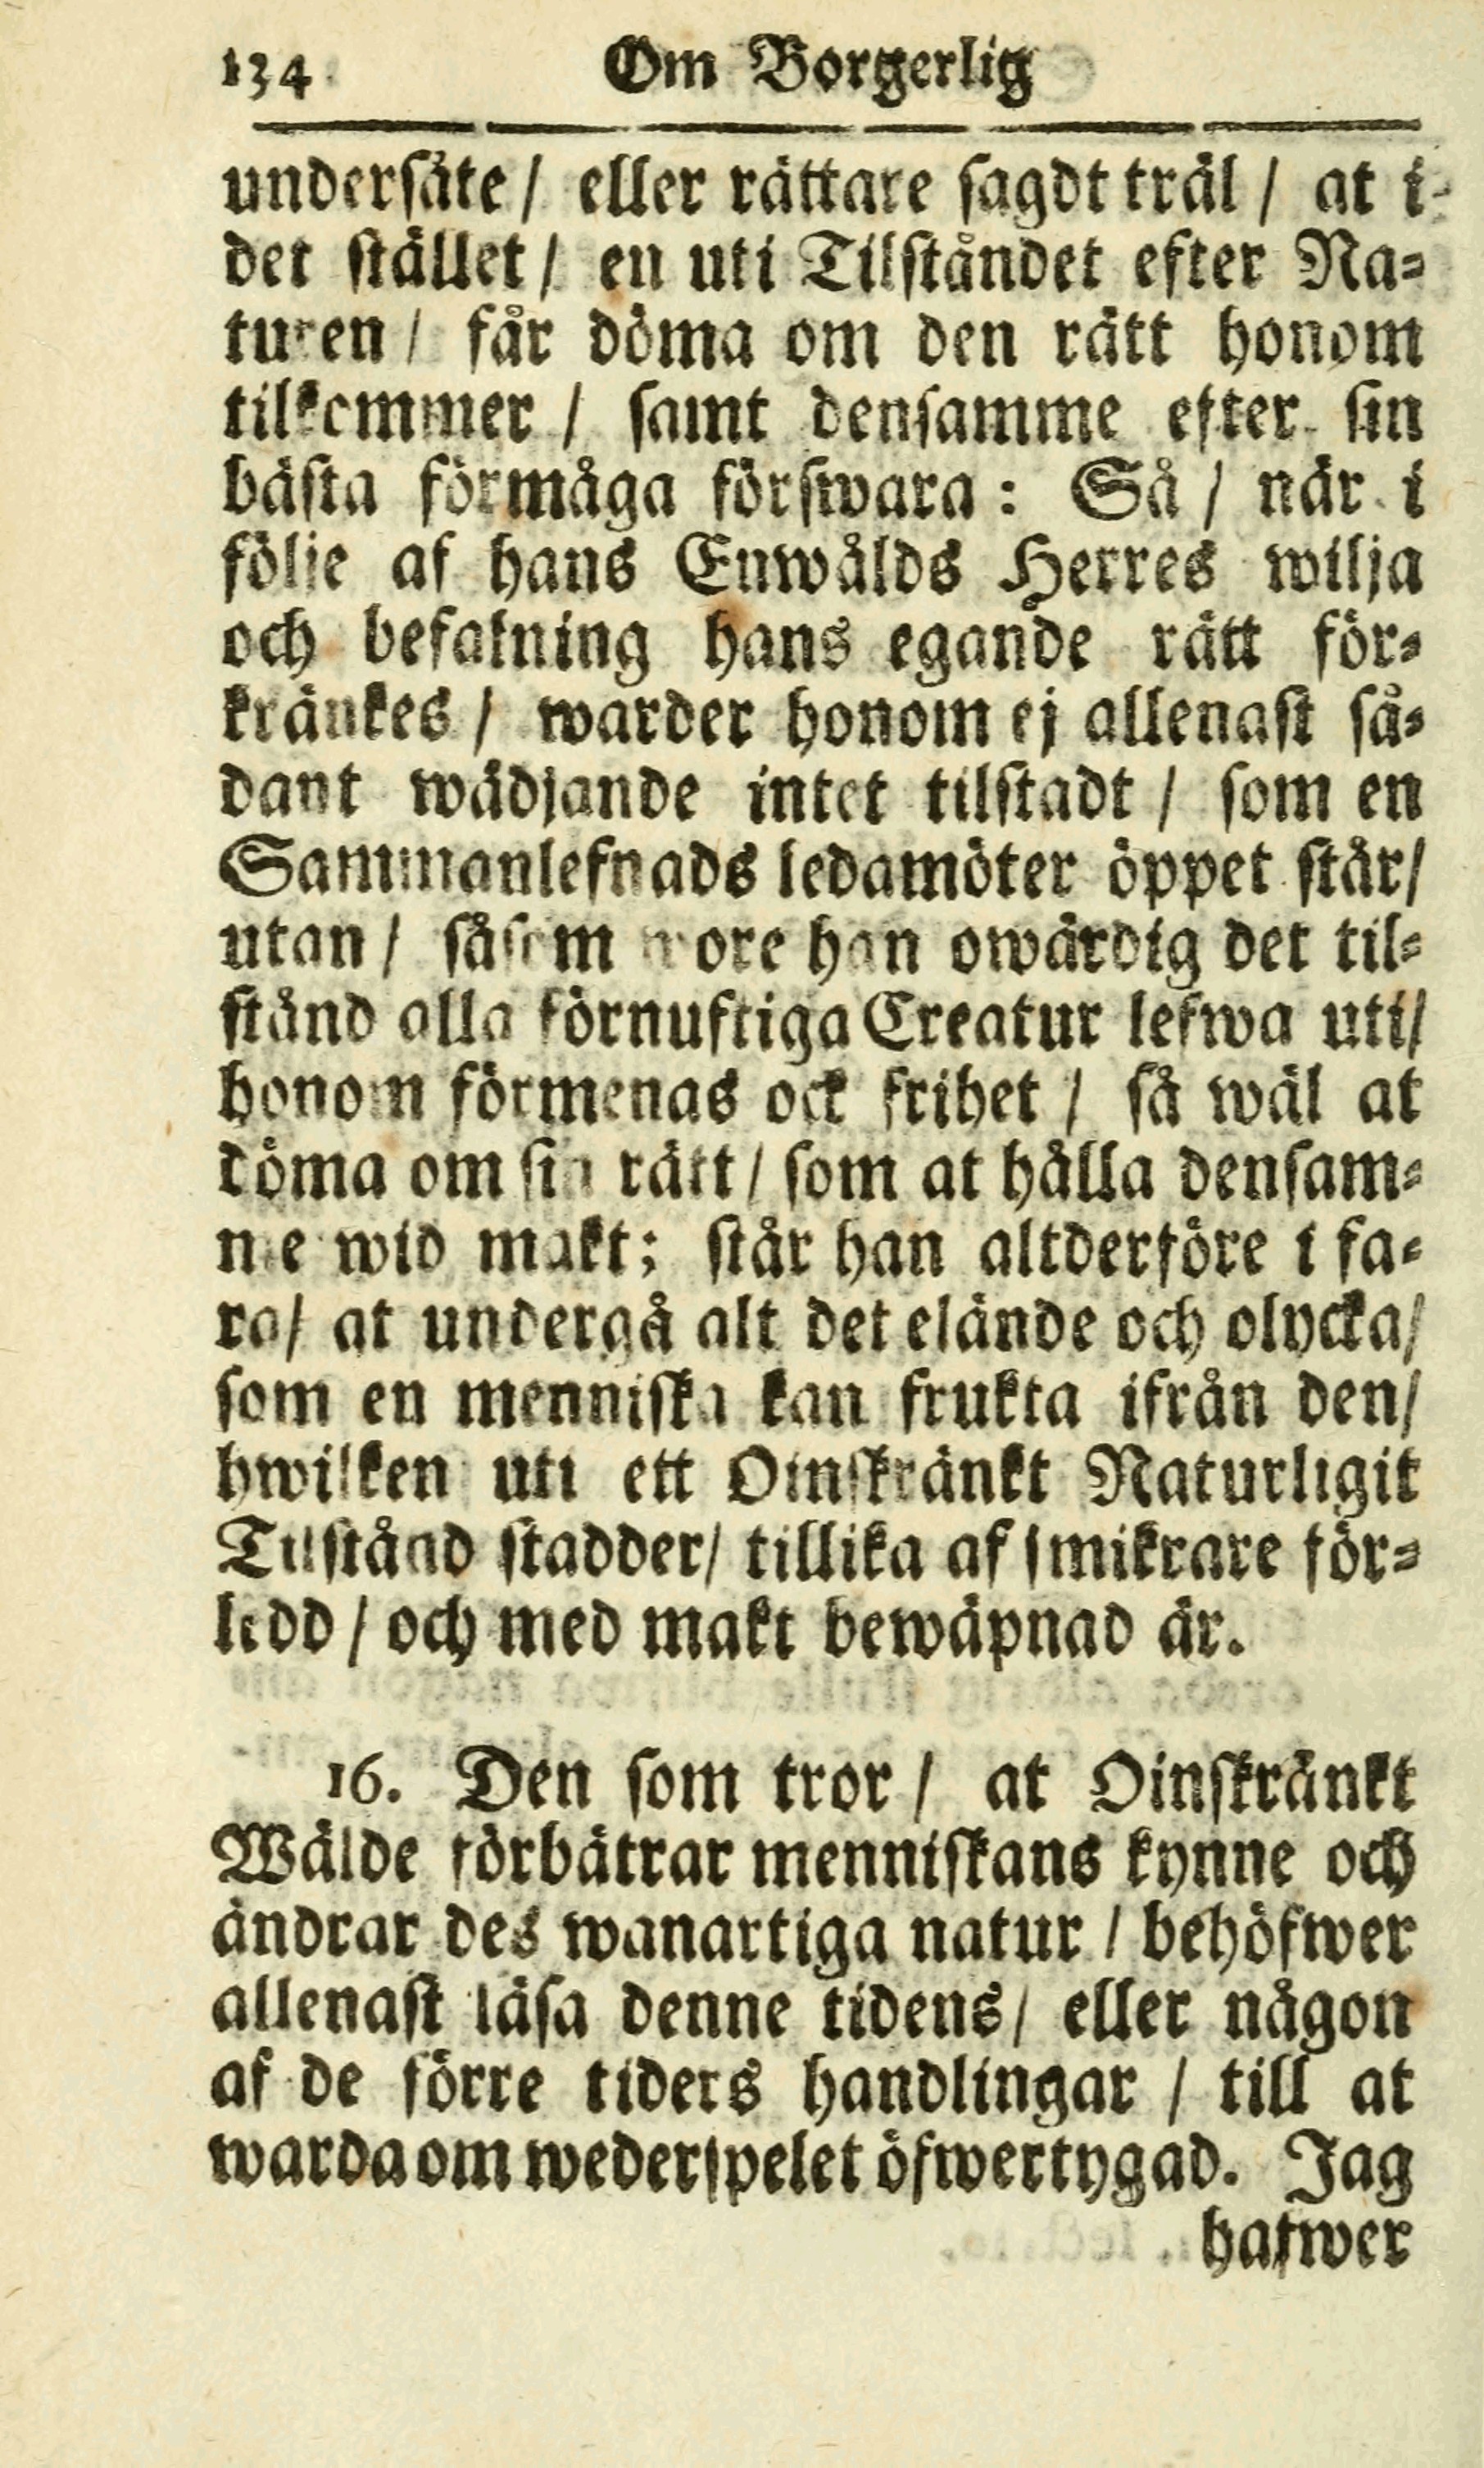 134 Om Borgerlig
undersåte / eller rättare sagdt träl / at i
det stället / en uti Tilståndet efter Na=
turen / får döma om den rätt honom
tilkommer / samt densamme efter sin
bästa förmåga förswara : Så / när i
följe af hans Enwålds Herres wilja
och befalning hans egande rätt för=
kränkes / warder honom ej allenast så=
dant wädjande intet tilstadt / som en
Sammanlefnads ledamöter öppet står/
utan / såsom wore han owärdig det til=
stånd alla förnuftiga Creatur lefwa uti/
honom förmenas ock frihet / så wäl at
döma om sin rätt / som at hålla densam=
me wid makt; står han altderföre i fa=
ra/ at undergå alt det elände och olycka/
som en menniska kan frukta ifrån den/
hwilken uti ett Oinskränkt Naturligit
Tilstånd stadder/ tillika af smikrare för=
ledd / och med makt bewäpnad är.
16. Den som tror / at Oinskränkt
Wälde förbätrar menniskans kynne och
ändrar des wanartiga natur / behöfwer
allenast läsa denne tidens/ eller någon
af de förre tiders handlingar / till at
warda om wederspelet öfwertygad. Jag
hafwer